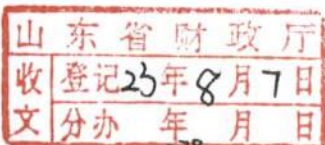 山东省财政厅
收文 登记23年8月7日
分办 年 月 日